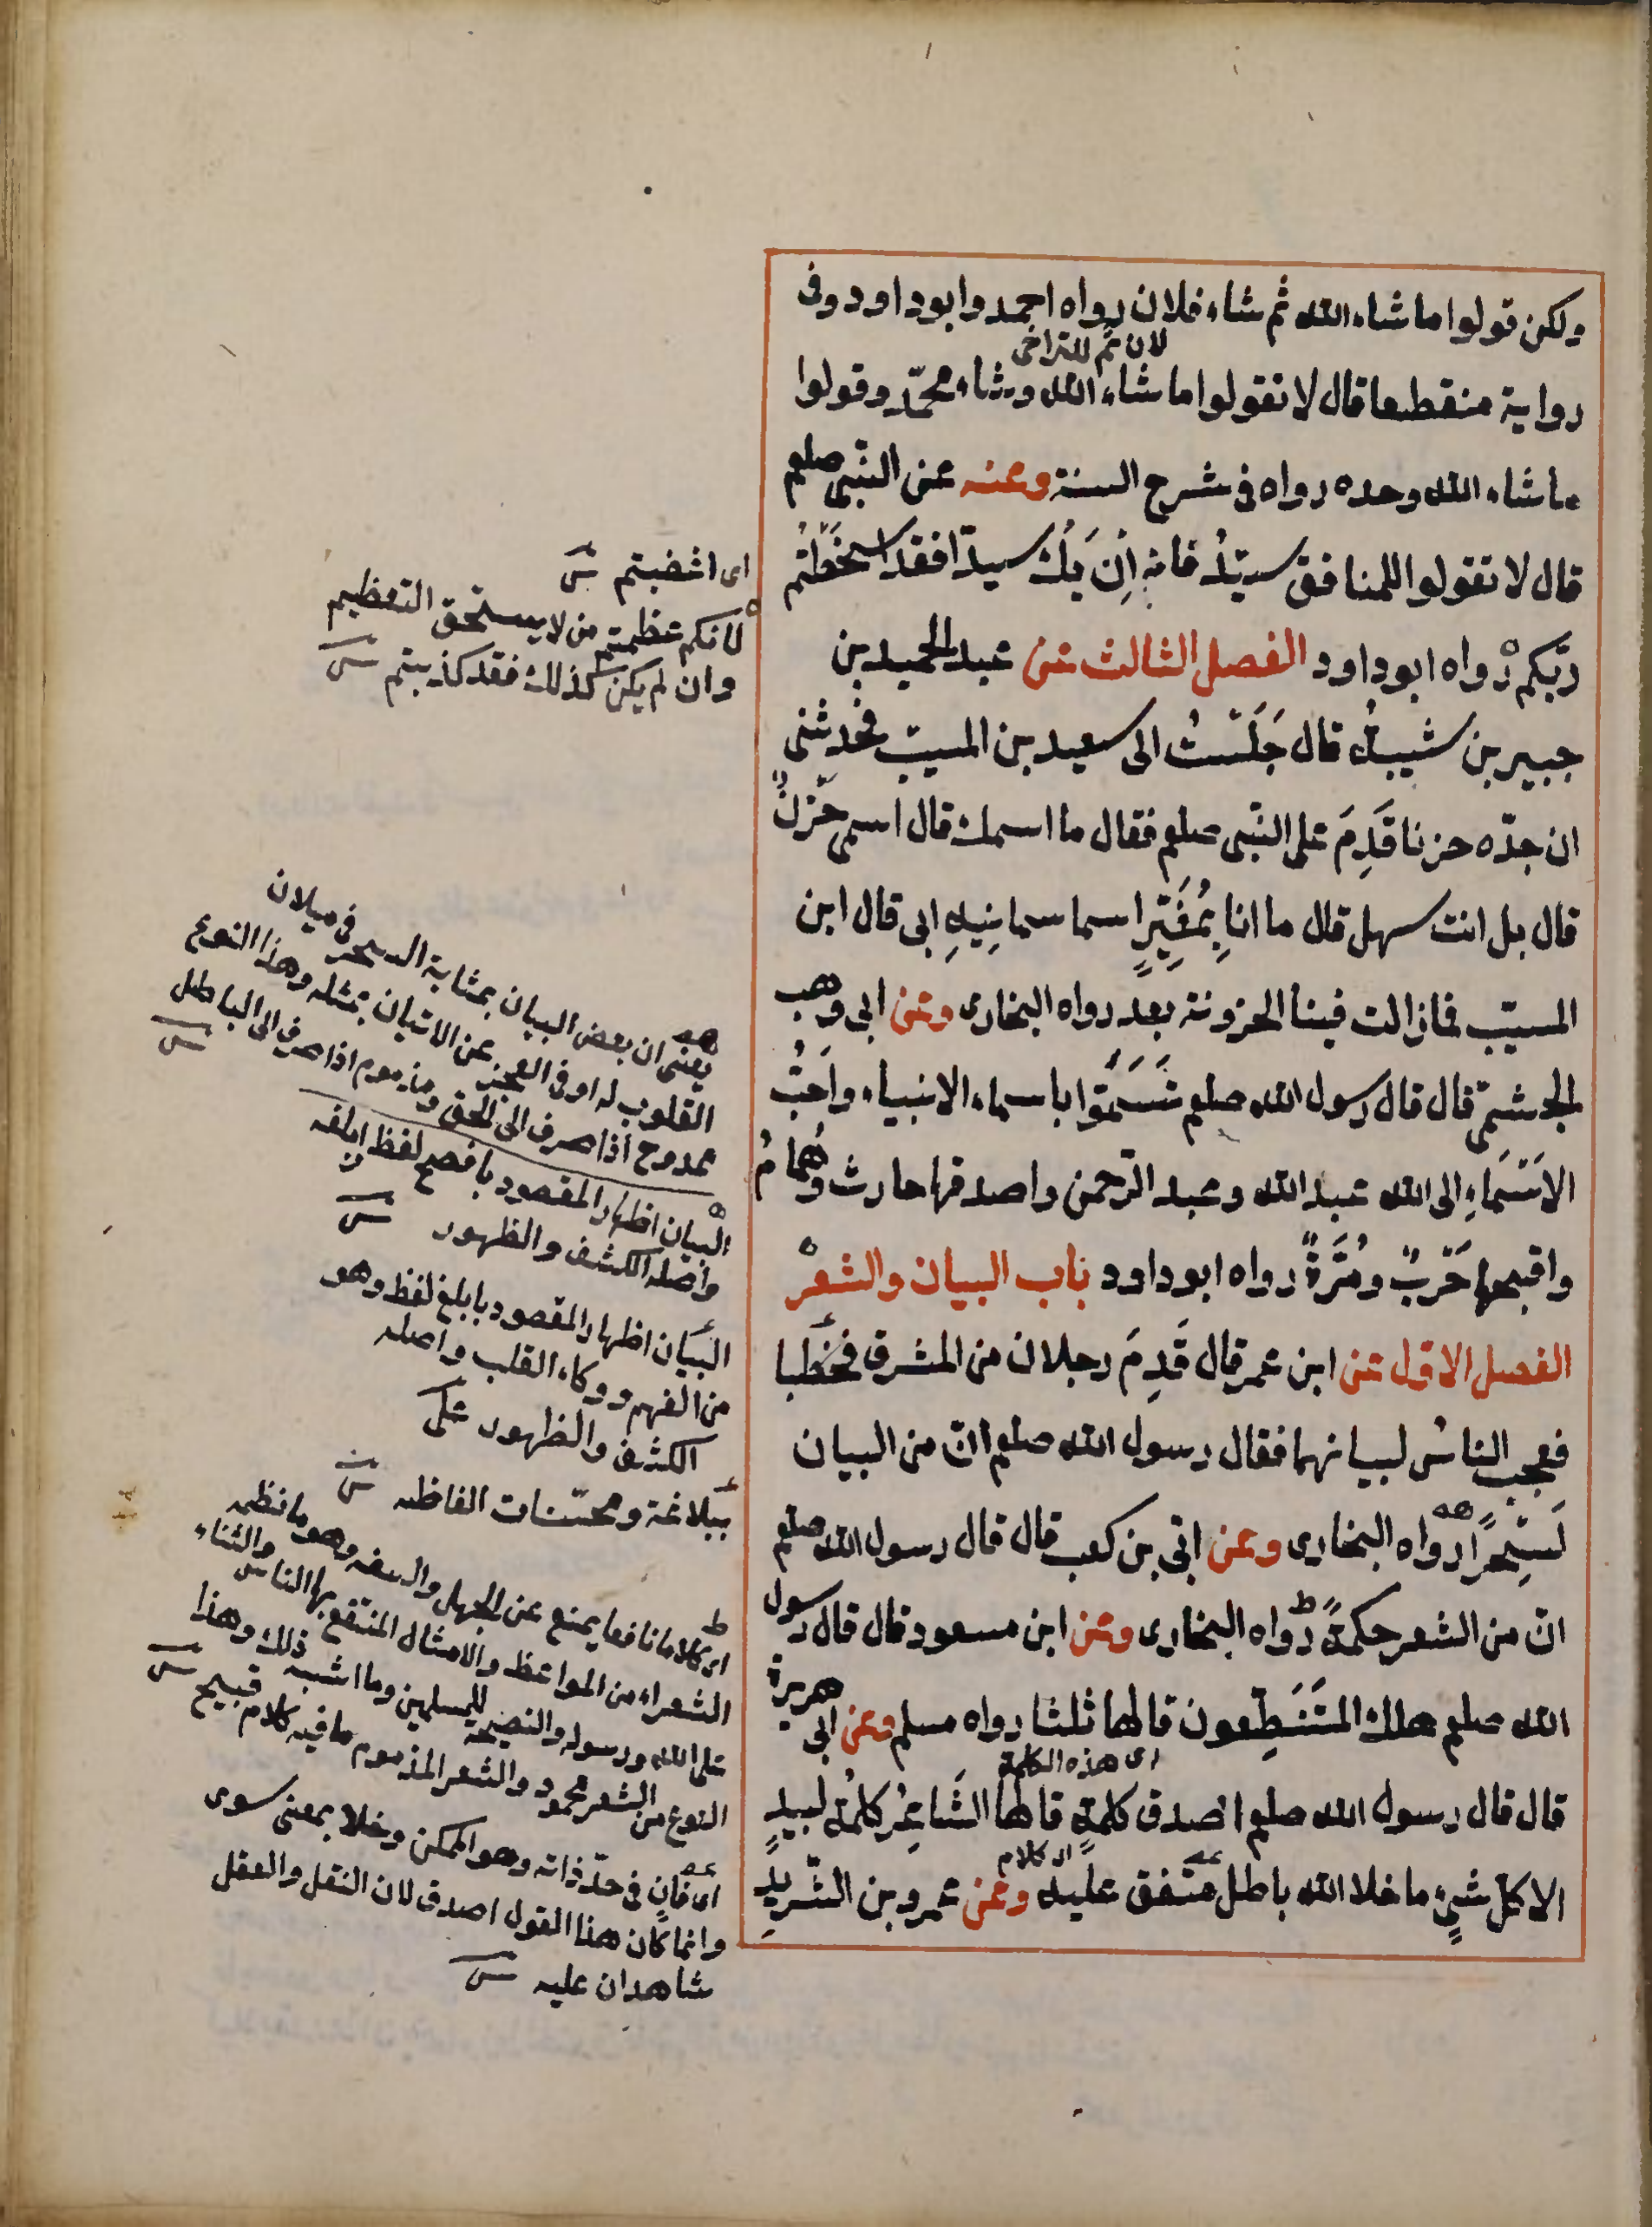 ولكن قولوا ما شاء الله ثم شاء فلان رواه احمد وابوداود وفى
لان ثم للتراخى
رواية منقطعا قال لا تقولوا ما شاء الله وشاء محمّد وقولوا
ما شاء الله وحده رواه فى شرح السنة وعنه عن النبى صلعم
قال لا تقولوا للمنافق سيّدٌ فانه اِنْ يَكُ سيدا فقد اسخَطْتُم
ربّكم رواه ابوداود الفصل الثالث عن عبد الحميد بن
جبير بن شيبة قال جَلَسْتُ الى سعيد بن المسيب فحدثنى
ان جدّه حزنا قَدِمَ على النّبى صلعم فقال ما اسمك قال اسمى حَزْنٌ
قال بل انت سهل قال ما انا بِمُغَيِّرٍ اسما سمانِيهِ ابى قال ابن
المسيّب فما زالت فينا الحزونة بعد رواه البخارى وعن ابى وهب
الجشمى قال قال رسول الله صلعم تَسَمَّوا باسماء الانبياء واَحَبُّ
الاَسْمَاءِ الى الله عبد الله وعبد الرّحمن واصدقها حارث وهُمامُ
واقبحها حَرْبٌ ومُرَّةٌ رواه ابوداود باب البيان والشعر
الفصل الاول عن ابن عمر قال قَدِمَ رجلان من المشرق فخَطَبا
فعجب الناسُ لبيانهما فقال رسول الله صلعم انّ من البيان
لَسِحْرًا رواه البخارى وعن ابّى بن كعب قال قال رسول الله صلعم
انّ من الشعر حكمةً رواه البخارى وعن ابن مسعود قال قال رسول
الله صلعم هلك المُتَنَطِّعون قالها ثلثا رواه مسلم وعن ابى هريرة
اى هذه الكلمة
قال قال رسول الله صلعم اصدق كلمةٍ قالها الشَاعِرُ كلمةُ لبيدٍ
اى كلام
الا كلّ شىءٍ ما خلا الله باطل متّفق عليه وعن عمرو بن الشّريدِ
اى اغضبتم
لانكم عظمتم من لا يستحق التعظيم
وان لم يكن كذلك فقد كذبتم
يعنى ان بعض البيان بمثابة السحر فى ميلان
القلوب له او فى العجز عن الاتيان بمثله وهذا النوع
ممدوح اذا صرف الى الحق ومذموم اذا صرف الى الباطل
البيان اظهار المقصود بافصح لفظ ابلغه
واصله الكشف والظهور
البيان اظهار المقصود بابلغ لفظ وهو
من الفهم وذكاء القلب واصله
الكشف والظهور على
ببلاغة ومحسّنات الفاظه
اى كلاما نافعا يمنع عن الجهل والسفه وهو ما نظمه
الشعراء من المواعظ والامثال المنتفع بها الناس والثناء
على الله ورسوله والنصيحة للمسلمين وما اشبه ذلك وهذا
النوع من الشعر محمود والشعر المذموم ما فيه كلام قبيح
اى فان فى حدّ ذاته وهو الممكن وخلا بمعنى سوى
وانما كان هذا القول اصدق لان النقل والعقل
شاهدان عليه